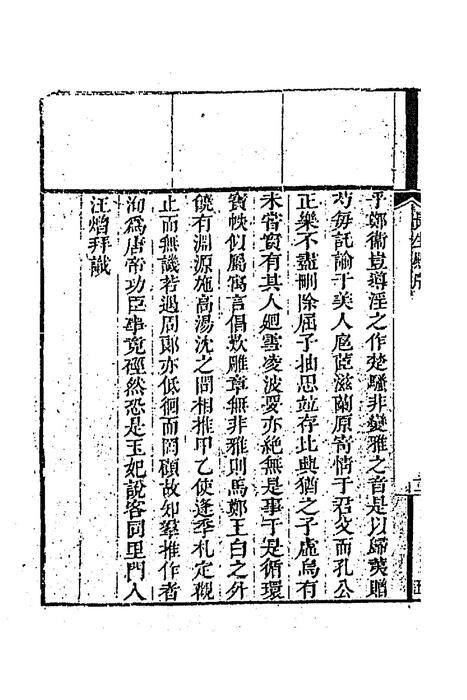 乎鄭衛豈導淫之作楚騷非變雅之音是以歸荑贈
芍每託諭于美人扈茝滋蘭原寄情于君父而孔公
正樂不盡刪除屈子抽思竝存比興猶之子虛烏有
未嘗實有其人迴雪凌波要亦絶無是事于是循環
寶帙似屬寓言倡歎雕章無非雅則馬鄭王白之外
饒有淵源施高湯沈之間相推甲乙使逢季札定觀
止而無譏若遇周郎亦低徊而罔顧故知羣推作者
洵爲唐帝功臣事竟徑然恐是玉妃說客同里門人
汪熷拜譔
長生殿序